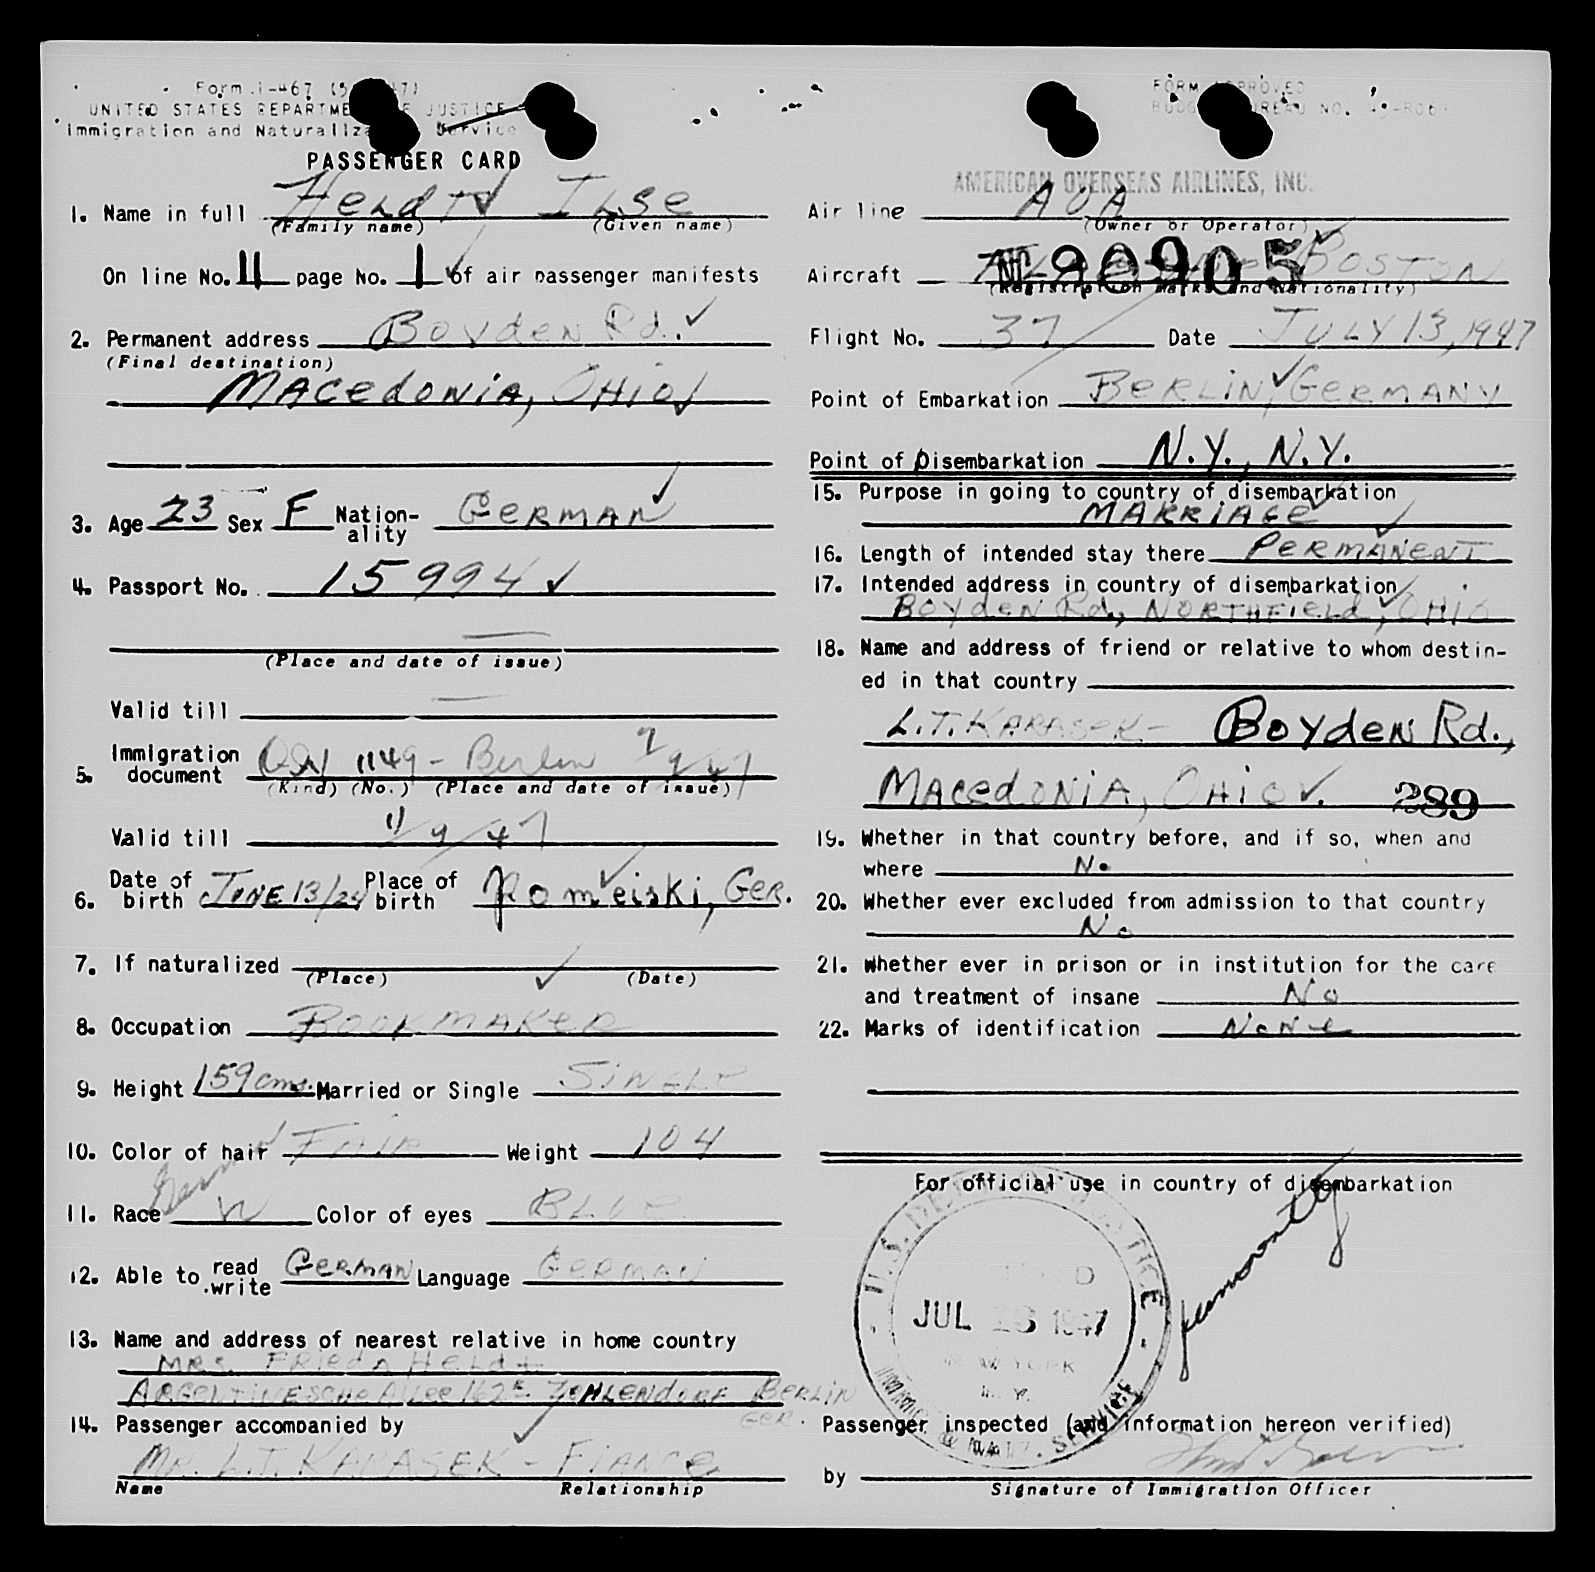 Form I-467
UNITED STATES DEPARTMENT OF JUSTICE
Immigration and Naturalization Service
PASSENGER CARD
1. Name in full Heldt Ilse
(Family name) (Given name)
On line No. 11 page No. 1 of air passenger manifests
2. Permanent address Boyden Rd.
(Final destination)
MACEDONIA, OHIO
3. Age 23 Sex F Nation-ality GERMAN
4. Passport No. 15994
(Place and date of issue)
Valid till —
5. Immigration document 1149 - Berlin
(Kind) (No.) (Place and date of issue)
Valid till 11/9/47
6. Date of birth JUNE 13/24 Place of birth Pomeiski, GER.
7. If naturalized
(Place) (Date)
8. Occupation BOOKMAKER
9. Height 159 cms. Married or Single SINGLE
10. Color of hair FAIR Weight 104
German
11. Race W Color of eyes BLUE
12. Able to read write GERMAN Language GERMAN
13. Name and address of nearest relative in home country
MRS. FRIEDA HELDT
ARGENTINESCHE ALLEE 162 ZEHLENDORF BERLIN
GER.
14. Passenger accompanied by
MR. L.T. KARASEK - FIANCE
Name Relationship
FORM APPROVED
BUDGET BUREAU NO.
AMERICAN OVERSEAS AIRLINES, INC.
Air line AOA
(Owner or Operator)
Aircraft N90905 BOSTON
(Registration marks and Nationality)
Flight No. 37 Date JULY 13, 1947
Point of Embarkation BERLIN, GERMANY
Point of Disembarkation N.Y., N.Y.
15. Purpose in going to country of disembarkation
MARRIAGE
16. Length of intended stay there PERMANENT
17. Intended address in country of disembarkation
BOYDEN Rd., NORTHFIELD, OHIO
18. Name and address of friend or relative to whom destin-
ed in that country
L.T. KARASEK - BOYDEN Rd.,
MACEDONIA, OHIO. 289
19. Whether in that country before, and if so, when and
where No
20. Whether ever excluded from admission to that country
No
21. Whether ever in prison or in institution for the care
and treatment of insane No
22. Marks of identification None
For official use in country of disembarkation
JUL 1947
NEW YORK
N.Y.
Passenger inspected (and information hereon verified)
by
Signature of Immigration Officer